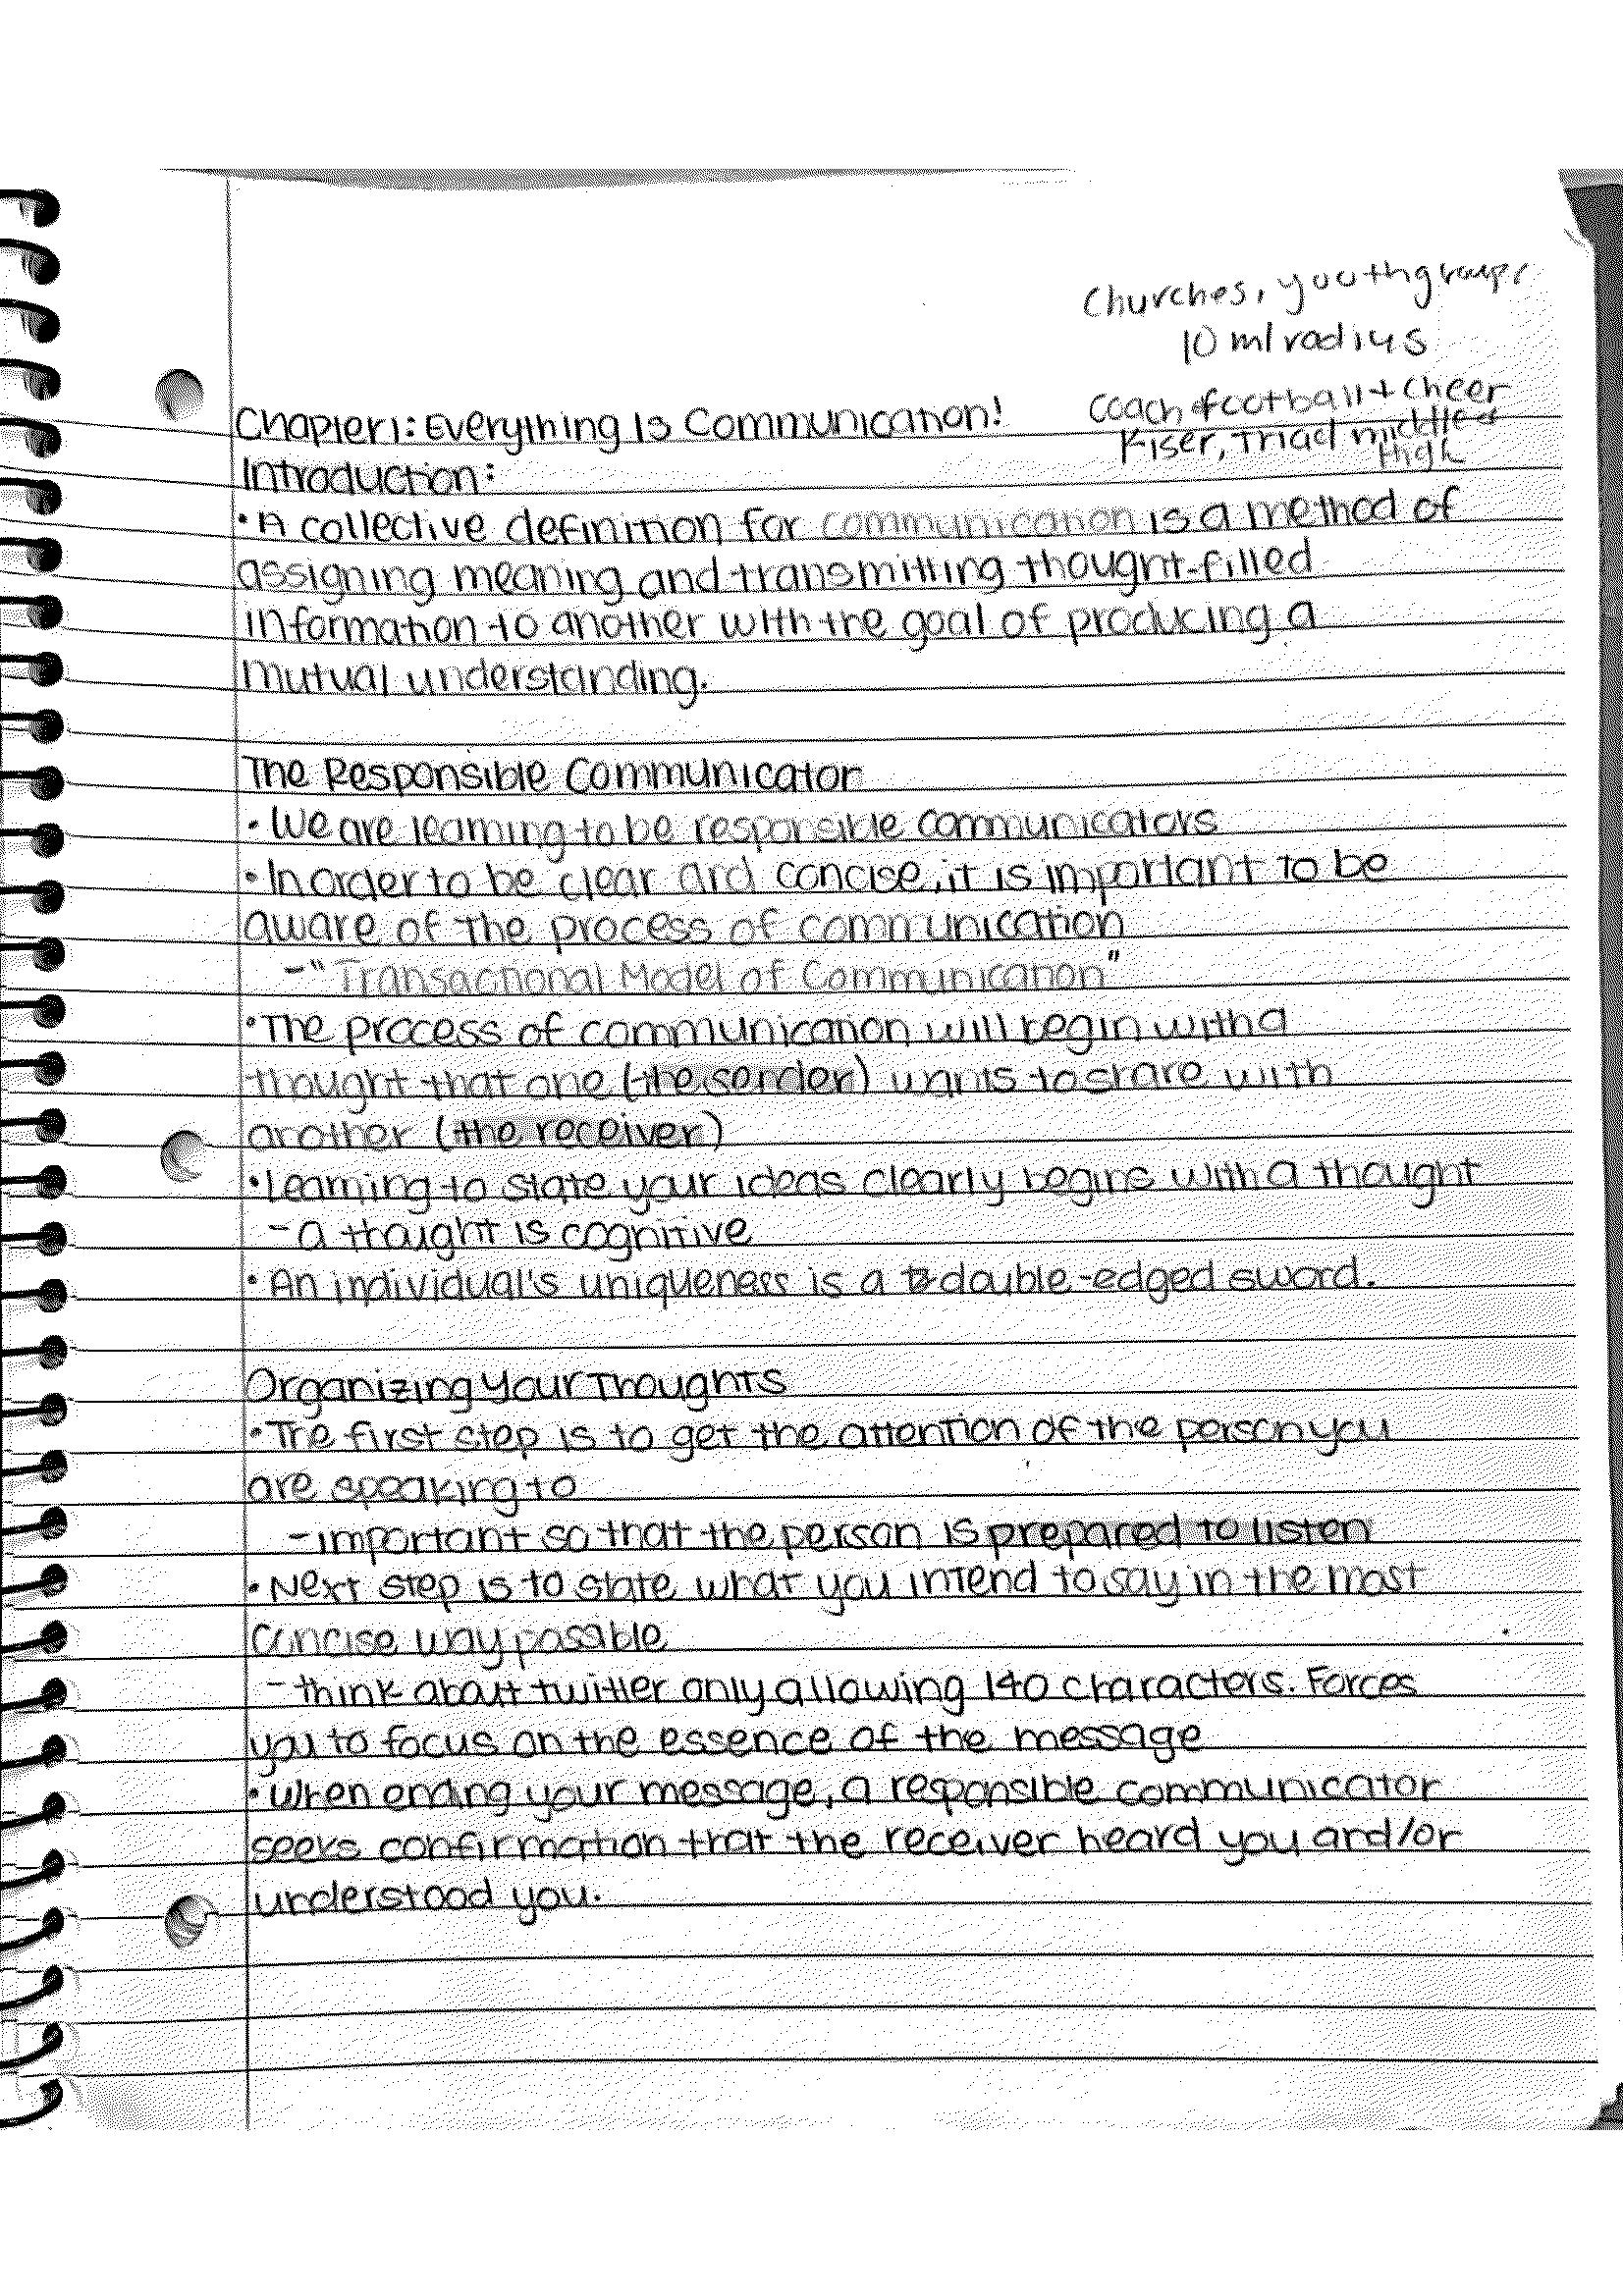 Churches, youthgroups
10 mi radius
Coach football + Cheer
Kiser, Triad middle &
High
Chapter 1: Everything Is Communication!
Introduction:
• A collective definition for communication is a method of
assigning meaning and transmitting thought-filled
information to another with the goal of producing a
mutual understanding.
The Responsible Communicator
• We are learning to be responsible communicators
• In order to be clear and concise, it is important to be
aware of the process of communication
- "Transactional Model of Communication"
• The process of communication will begin with a
thought that one (the sender) wants to share with
another (the receiver)
• Learning to state your ideas clearly begins with a thought
- a thought is cognitive
• An individual's uniqueness is a double-edged sword.
Organizing Your Thoughts
• The first step is to get the attention of the person you
are speaking to
- important so that the person is prepared to listen
• Next step is to state what you intend to say in the most
concise way possible
- think about twitter only allowing 140 characters. Forces
you to focus on the essence of the message
• When ending your message, a responsible communicator
seeks confirmation that the receiver heard you and/or
understood you.